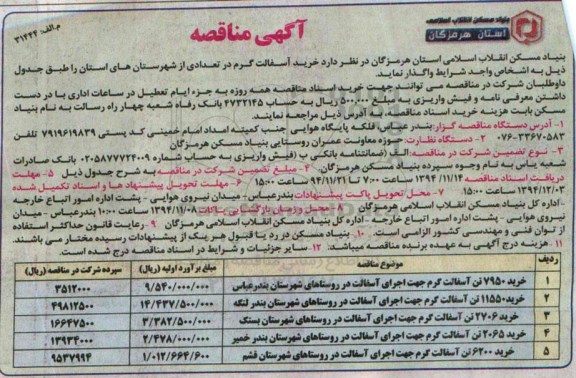 م.الف: ۳۱۴۴۴
آگهی مناقصه
بنیاد مسکن انقلاب اسلامی
استان هرمزگان
بنیاد مسکن انقلاب اسلامی استان هرمزگان در نظر دارد خرید آسفالت گرم در تعدادی از شهرستان های استان را طبق جدول
ذیل به اشخاص واجد شرایط واگذار نماید.
داوطلبان شرکت در مناقصه می توانند جهت خرید اسناد مناقصه همه روزه به جزء ایام تعطیل در ساعات اداری با در دست
داشتن معرفی نامه و فیش واریزی به مبلغ ۵۰۰,۰۰۰ ریال به حساب ۴۷۳۲۱۴۵ بانک رفاه شعبه چهار راه رسالت به نام بنیاد
مسکن بابت هزینه خرید اسناد مناقصه، به آدرس ذیل مراجعه نمایند.
۱- آدرس دستگاه مناقصه گزار: بندرعباس، فلکه پایگاه هوایی جنب کمیته امداد امام خمینی کد پستی ۷۹۱۹۶۱۹۸۳۹ تلفن
۰۷۶-۳۳۶۷۰۵۸۳ ۲- دستگاه نظارت: حوزه معاونت عمران روستایی بنیاد مسکن هرمزگان
۳- نوع تضمین شرکت در مناقصه: الف (ضمانتنامه بانکی ب (فیش واریزی به حساب شماره ۰۲۰۵۸۷۷۷۲۴۰۰۹ بانک صادرات
شعبه یاس به نام وجوه سپرده بنیاد مسکن هرمزگان. ۴- مبلغ تضمین شرکت در مناقصه به شرح جدول ذیل ۵- مهلت
دریافت اسناد مناقصه ۱۳۹۴/۱۱/۱۴ ساعت ۷:۰۰ تا ۹۴/۱۱/۲۱ ساعت ۱۵:۰۰ ۶- مهلت تحویل پیشنهاد ها و اسناد تکمیل شده
۱۳۹۴/۱۲/۰۳ ساعت ۱۵:۰۰ ۷- محل تحویل پاکت پیشنهادات: بندرعباس - میدان نیروی هوایی - پشت اداره امور اتباع خارجه
- اداره کل بنیاد مسکن انقلاب اسلامی هرمزگان ۸- محل و زمان بازگشایی پاکات: ساعت ۱۰:۰۰ بندرعباس - میدان
نیروی هوایی - پشت اداره امور اتباع خارجه - اداره کل بنیاد مسکن انقلاب اسلامی هرمزگان ۹- رعایت قانون حداکثر استفاده
از توان فنی و مهندسی کشور الزامی است. ۱۰- بنیاد مسکن در رد یا قبول هر یک از پیشنهادات رسیده مختار می باشند.
۱۱- هزینه درج آگهی به عهده برنده مناقصه میباشد. ۱۲- سایر جزئیات و شرایط در اسناد مناقصه درج شده است.
ردیف موضوع مناقصه مبلغ برآورد اولیه (ریال) سپرده شرکت در مناقصه (ریال)
۱ خرید ۷۹۵۰ تن آسفالت گرم جهت اجرای آسفالت در روستاهای شهرستان بندرعباس ۹/۵۴۰/۰۰۰/۰۰۰ ۳۵۱۲۰۰۰
۲ خرید ۱۱۵۵۰ تن آسفالت گرم جهت اجرای آسفالت در روستاهای شهرستان بندر لنگه ۱۴/۴۳۷/۵۰۰/۰۰۰ ۴۹۸۱۲۵۰۰
۳ خرید ۲۷۰۶ تن آسفالت گرم جهت اجرای آسفالت در روستاهای شهرستان بستک ۳/۳۸۲/۵۰۰/۰۰۰ ۱۶۶۴۷۵۰۰
۴ خرید ۲۰۶۵ تن آسفالت گرم جهت اجرای آسفالت در روستاهای شهرستان بندر خمیر ۲/۴۷۸/۰۰۰/۰۰۰ ۱۳۹۳۴۰۰۰
۵ خرید ۶۲۰۰ تن آسفالت گرم جهت اجرای آسفالت در روستاهای شهرستان قشم ۱/۰۱۲/۶۶۴/۶۰۰ ۹۵۳۷۹۹۴